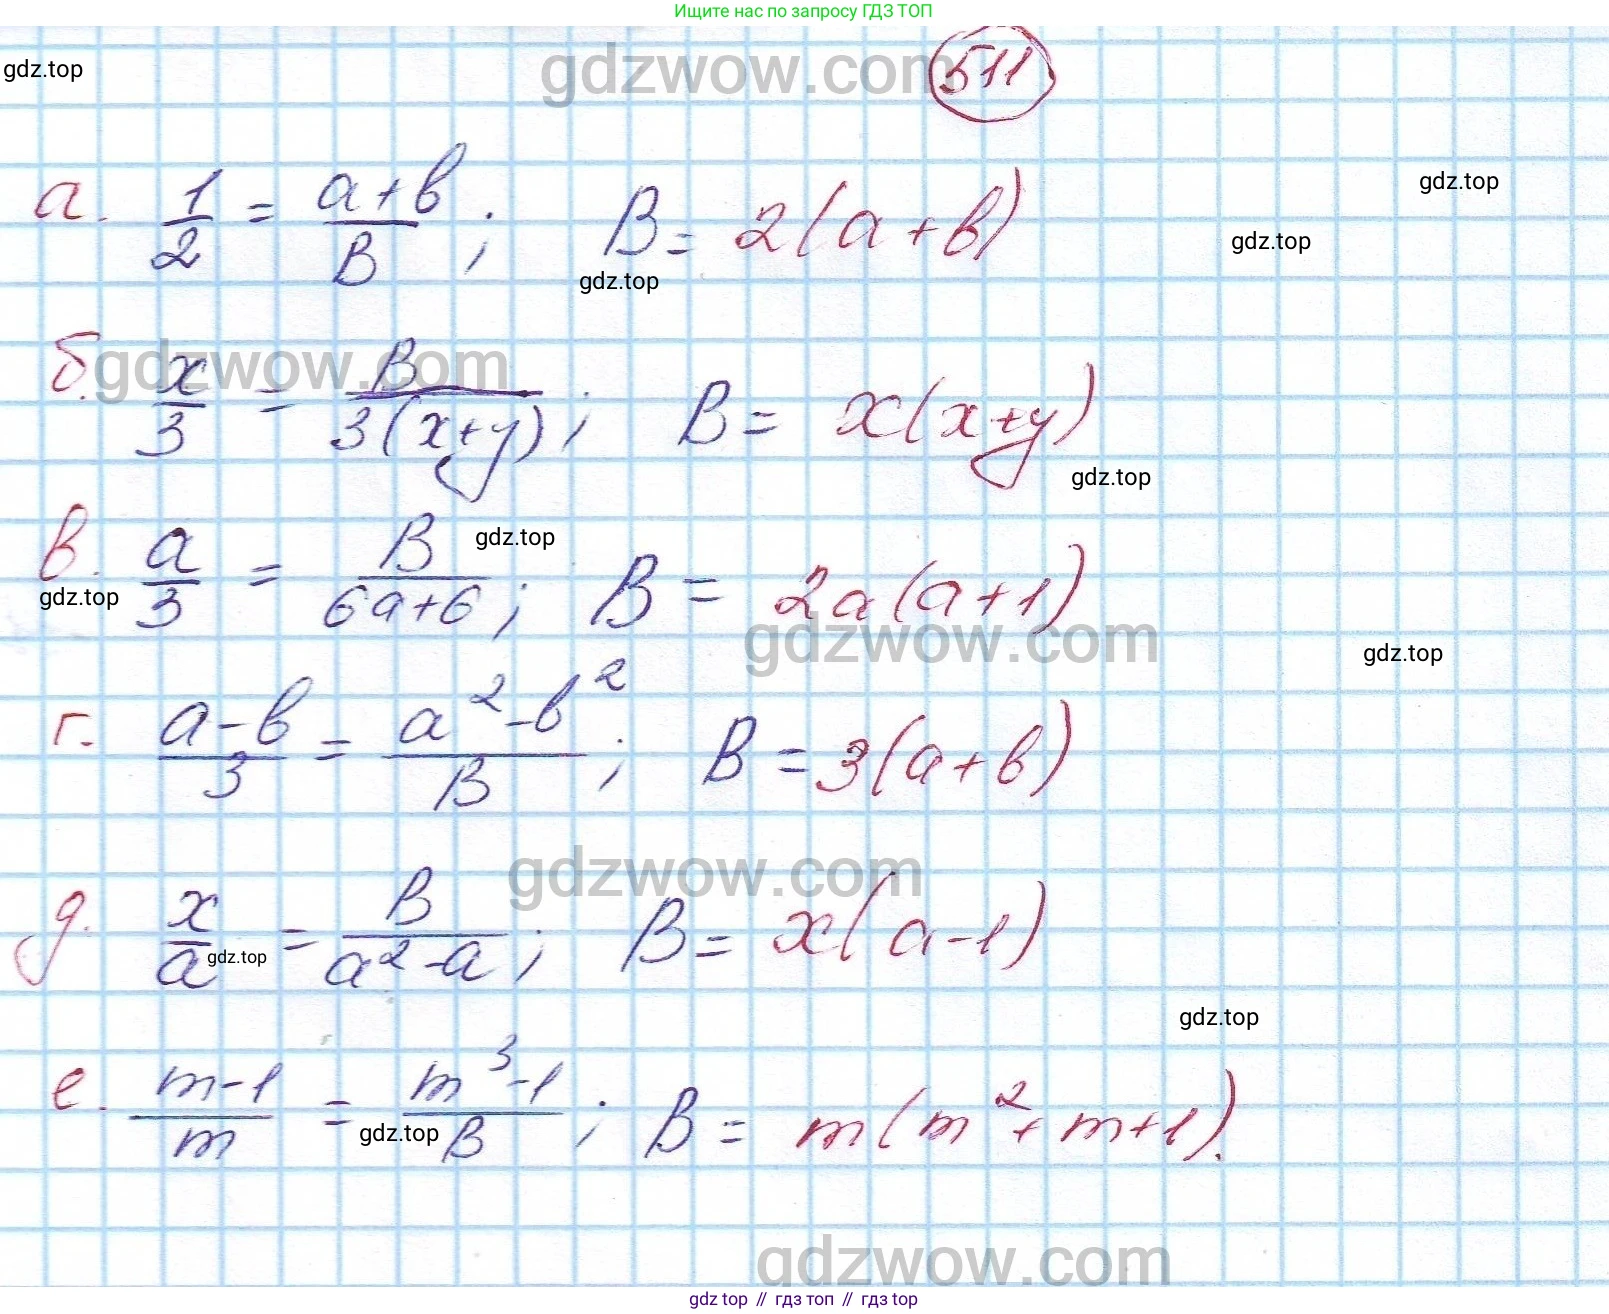 Ищите нас по запросу ГДЗ ТОП
gdz.top
gdzwow.com
511
gdz.top
а. 1/2 = a+b/B; B = 2(a+b)
gdz.top
gdz.top
gdzwow.com
б. x/3 = B/3(x+y); B = x(x+y)
gdz.top
gdz.top
в. a/3 = B/6a+6; B = 2a(a+1)
gdz.top
gdzwow.com
gdz.top
г. a-b/3 = a²-b²/B; B = 3(a+b)
gdzwow.com
д. x/a = B/a²-a; B = x(a-1)
gdz.top
gdz.top
е. m-1/m = m³-1/B; B = m(m²+m+1).
gdz.top
gdzwow.com
gdz top // гдз топ // гдз top